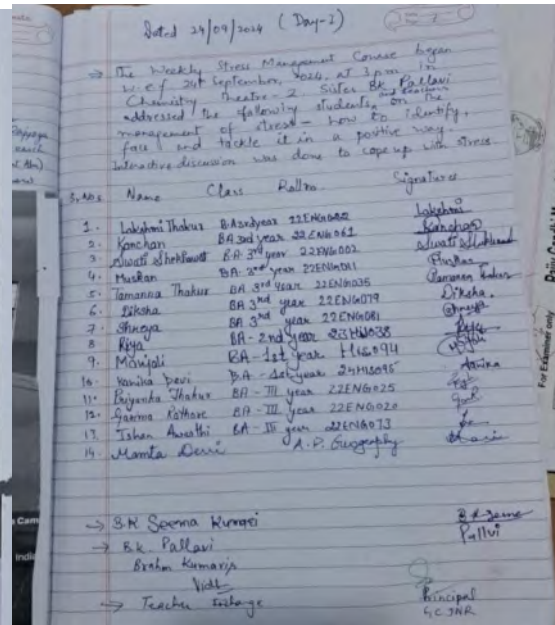 Dated 24/09/2024 (Day-I)
→ The Weekly Stress Management Course began
w.e.f 24th September, 2024, at 3 pm in
Chemistry Theatre-2. Sister BK Pallavi
and teachers
addressed the following students, on the
management of stress – how to identify,
face and tackle it in a positive way.
Interactive discussion was done to cope up with stress.
Sr.Nos Name Class Rollno. Signatures
1. Lakshmi Thakur BA 3rd year Lakshmi
2. Kanchan BA 3rd year 22ENG061 Kanchan
3. Swati B.A 3rd year 22ENG002 Swati
4. Muskan BA 3rd year 22ENG011 Muskan
5. Tamanna Thakur BA 3rd Year 22ENG035 Tamanna Thakur
6. Diksha BA 3rd year 22ENG079 Diksha.
7. Shreya BA 3rd year 22ENG081 Shreya
8. Riya BA - 2nd year 23HIS038
9. Manjali BA - 1st year HIS094
10. Kanika Devi B.A - 1st year 24HIS095 Kanika
11. Priyanka Thakur BA - III year 22ENG025
12. Garima Rathore BA - III year 22ENG020
13. Ishan Awasthi BA - III year 22ENG073
14. Mamta Devi A.P. Geography
→ B.K Seema Kumari
→ B.K. Pallavi Pallvi
Brahm Kumaris
→ Teacher Incharge
Principal
GC JNR
For Examiner only
India